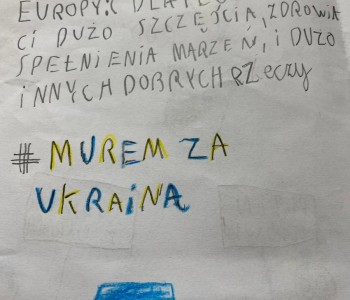 EUROPY: DLATEGO
CI DUŻO SZCZĘŚCIA, ZDROWIA
SPEŁNIENIA MARZEŃ, I DUŻO
INNYCH DOBRYCH RZECZY
# MUREM ZA
UKRAINĄ